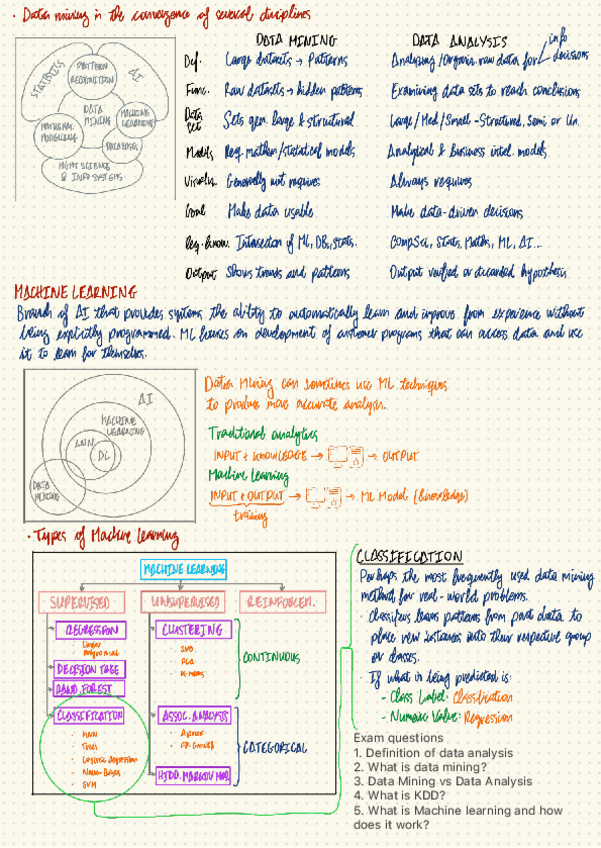 · Data mining in the convergence of several disciplines
STATISTICS
PATTERN
RECOGNITION
AI
DATA
MINING
MACHINE
LEARNING
MATHEMAT.
MODELLING
DATABASES
MGMT SCIENCE
& INFO SYSTEMS
DATA MINING DATA ANALYSIS
Def. Large datasets → Patterns Analyzing/Organiz. raw data for info decisions
Func. Raw datasets → hidden patterns Examining data sets to reach conclusions
Data set Sets gen. large & structured Large/Med/Small - Structured, Semi or Un.
Models Req. mathem/statistical models Analytical & Business intel. models
Visualiz. Generally not requires Always requires
Goal Make data usable Make data-driven decisions
Req. know. Intersection of ML, DB, Stats. CompSci, Stats, Maths, ML, AI...
Output Shows trends and patterns Output verified or discarded hypothesis
MACHINE LEARNING
Branch of AI that provides systems the ability to automatically learn and improve from experience without
being explicitly programmed. ML focuses on development of programs that can access data and use
it to learn for themselves.
AI
MACHINE
LEARNING
ANN
DL
DATA
MINING
Data Mining can sometimes use ML techniques
to produce more accurate analysis.
Traditional analytics
INPUT + KNOWLEDGE → → OUTPUT
Machine Learning
INPUT + OUTPUT → → ML Model (knowledge)
training
· Types of Machine Learning
MACHINE LEARNING
SUPERVISED UNSUPERVISED REINFORCEM.
REGRESSION
Linear
Polynomial
DECISION TREE
RAND. FOREST
CLASSIFICATION
· KNN
· Trees
· Logistic Regression
· Naive-Bayes
· SVM
CLUSTERING
· SVD
· PCA
· K-means
ASSOC. ANALYSIS
· Apriori
· FP-Growth
HIDD. MARKOV MOD.
CONTINUOUS
CATEGORICAL
CLASSIFICATION
Perhaps the most frequently used data mining
method for real-world problems.
· Classifiers learns patterns from past data to
place new instances into their respective group
or classes.
· If what is being predicted is:
- Class Label: Classification
- Numeric Value: Regression
Exam questions
1. Definition of data analysis
2. What is data mining?
3. Data Mining vs Data Analysis
4. What is KDD?
5. What is Machine learning and how
does it work?